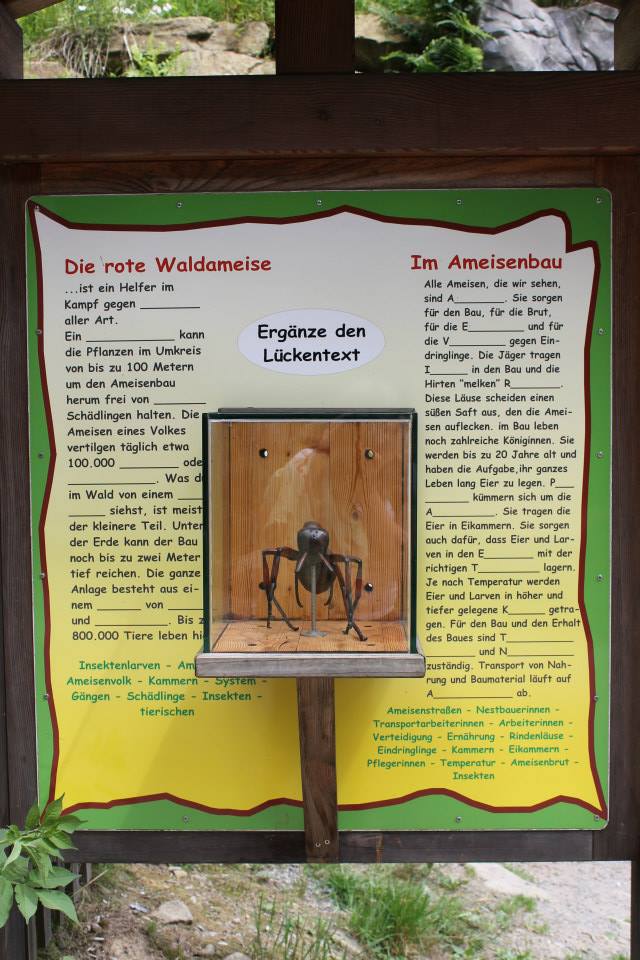 Die rote Waldameise
...ist ein Helfer im
Kampf gegen _________
aller Art.
Ein _____________ kann
die Pflanzen im Umkreis
von bis zu 100 Metern
um den Ameisenbau
herum frei von ________
Schädlingen halten. Die
Ameisen eines Volkes
vertilgen täglich etwa
100.000 _________ ode
_____________. Was d
im Wald von einem ____
_____ siehst, ist meist
der kleinere Teil. Unter
der Erde kann der Bau
noch bis zu zwei Meter
tief reichen. Die ganze
Anlage besteht aus ei-
nem _______ von _____
und ________. Bis z
800.000 Tiere leben hi
Insektenlarven - Am
Ameisenvolk - Kammern - System -
Gängen - Schädlinge - Insekten -
tierischen
Ergänze den
Lückentext
Im Ameisenbau
Alle Ameisen, die wir sehen,
sind A_________. Sie sorgen
für den Bau, für die Brut,
für die E__________ und für
die V__________ gegen Ein-
dringlinge. Die Jäger tragen
I______ in den Bau und die
Hirten "melken" R________.
Diese Läuse scheiden einen
süßen Saft aus, den die Amei-
sen auflecken. im Bau leben
noch zahlreiche Königinnen. Sie
werden bis zu 20 Jahre alt und
haben die Aufgabe,ihr ganzes
Leben lang Eier zu legen. P___
_______ kümmern sich um die
A___________. Sie tragen die
Eier in Eikammern. Sie sorgen
auch dafür, dass Eier und Lar-
ven in den E________ mit der
richtigen T_________ lagern.
Je nach Temperatur werden
Eier und Larven in höher und
tiefer gelegene K______ getra-
gen. Für den Bau und den Erhalt
des Baues sind T___________
________ und N___________
zuständig. Transport von Nah-
rung und Baumaterial läuft auf
A_____________ ab.
Ameisenstraßen - Nestbauerinnen -
Transportarbeiterinnen - Arbeiterinnen -
Verteidigung - Ernährung - Rindenläuse -
Eindringlinge - Kammern - Eikammern -
Pflegerinnen - Temperatur - Ameisenbrut -
Insekten